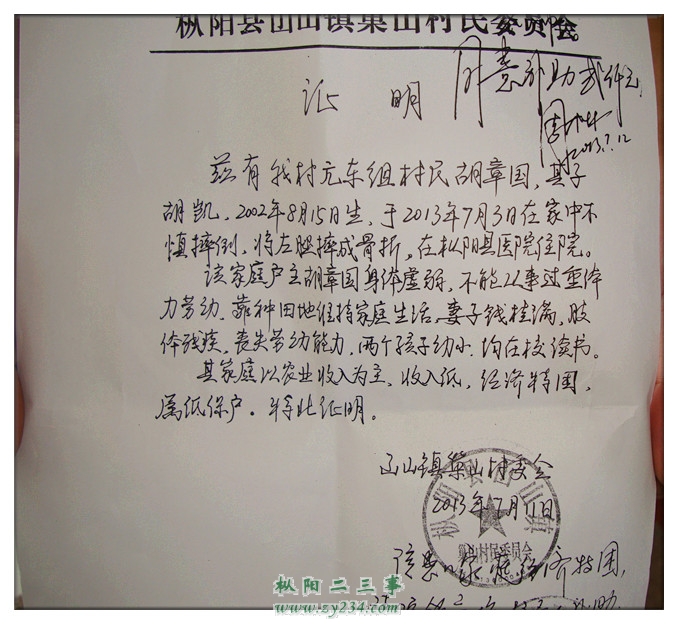 枞阳县凸山镇巢山村民委员会
证明
同意补助贰仟元
2013.7.12
兹有我村亢东组村民胡章国,其子
胡凯,2002年8月15日生,于2013年7月3日在家中不
慎摔倒,将左腿摔成骨折,在枞阳县医院住院。
该家庭户主胡章国身体虚弱,不能从事过重体
力劳动.靠种田地维持家庭生活,妻子钱桂满,肢
体残疾,丧失劳动能力,两个孩子幼小.均在校读书。
其家庭以农业收入为主,收入低,经济特困,
属低保户。特此证明。
山镇 山村委会
2013年7月11日
枞阳县 山镇
山村民委员会
该患儿家庭经济特困,
枞阳二三事
www.zy234.com